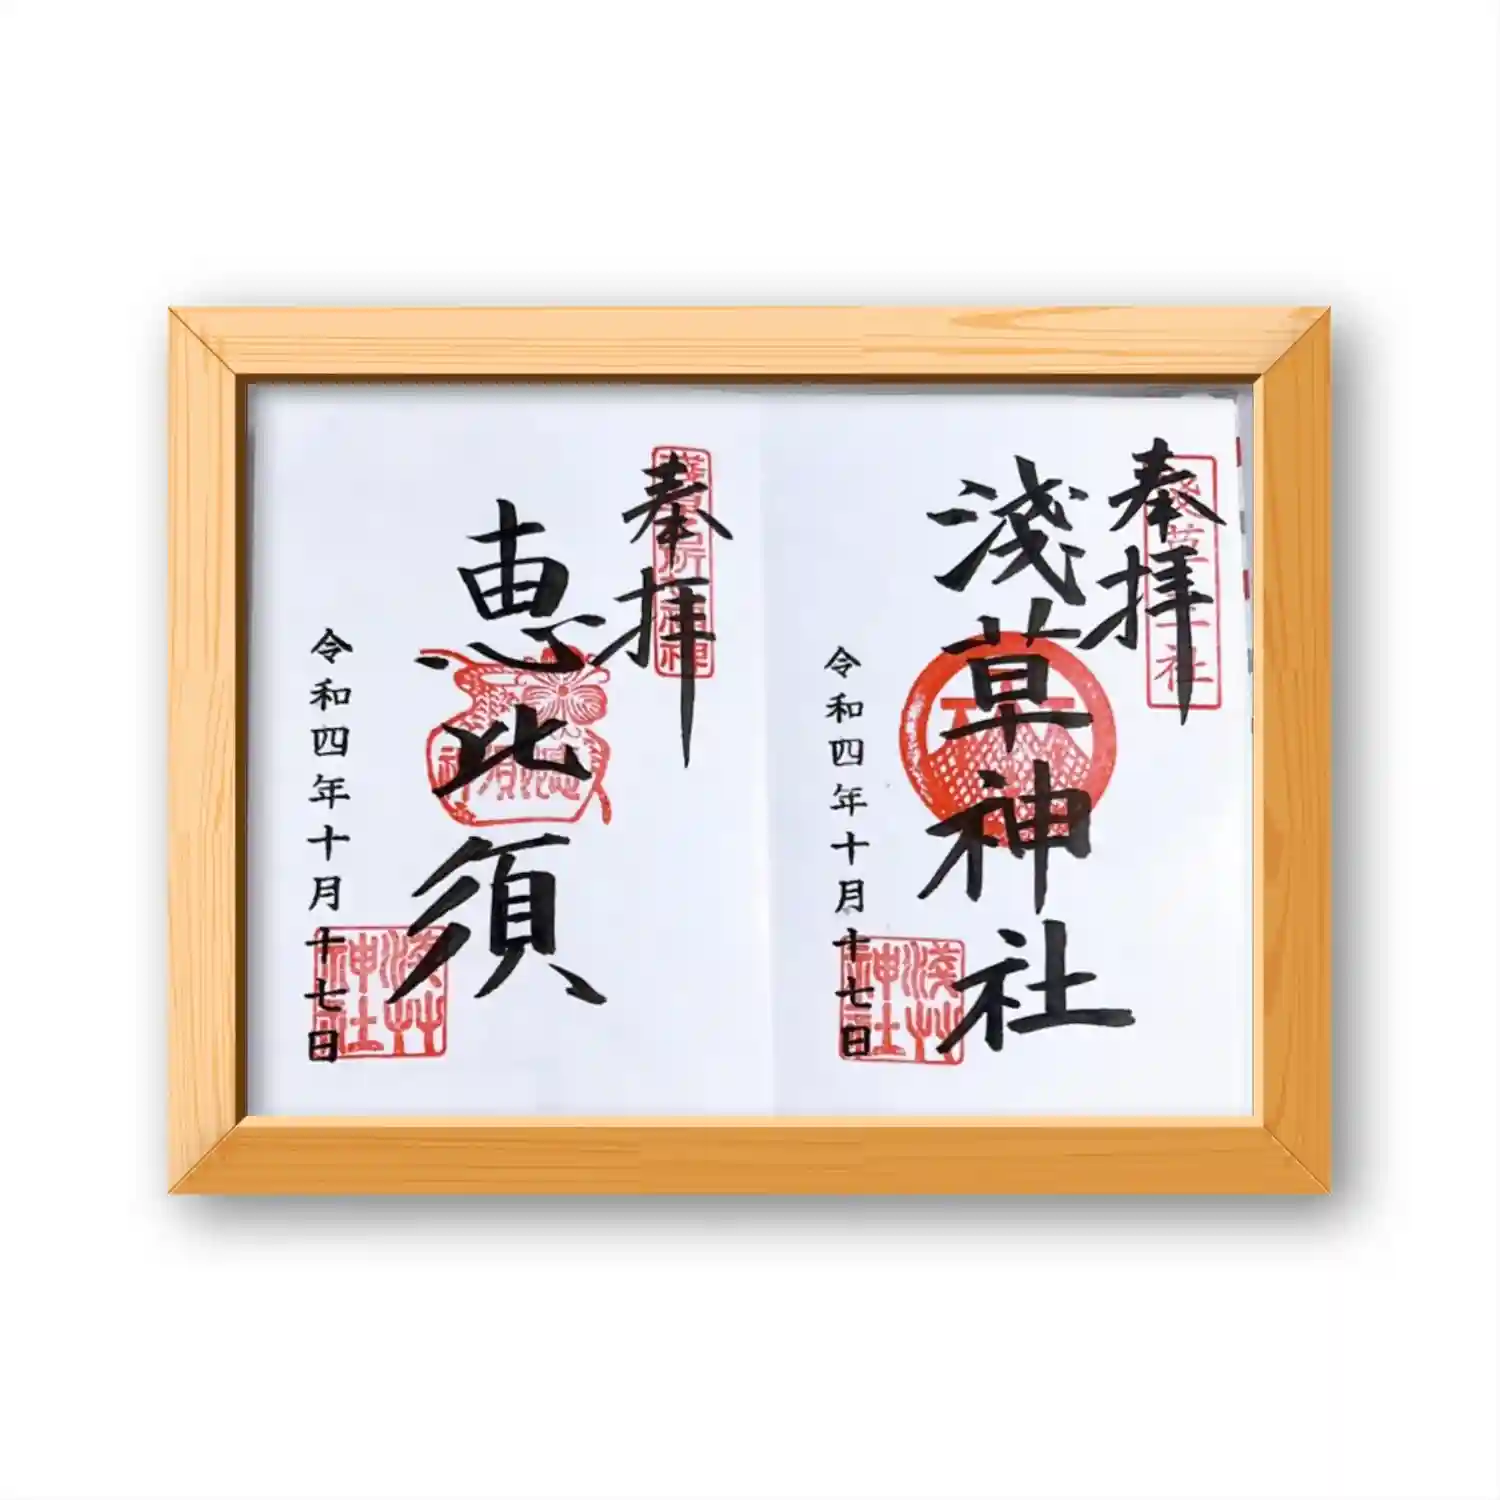 奉拝
浅草神社
令和四年十月十七日
浅草神社
奉拝
恵比須
令和四年十月十七日
浅草神社